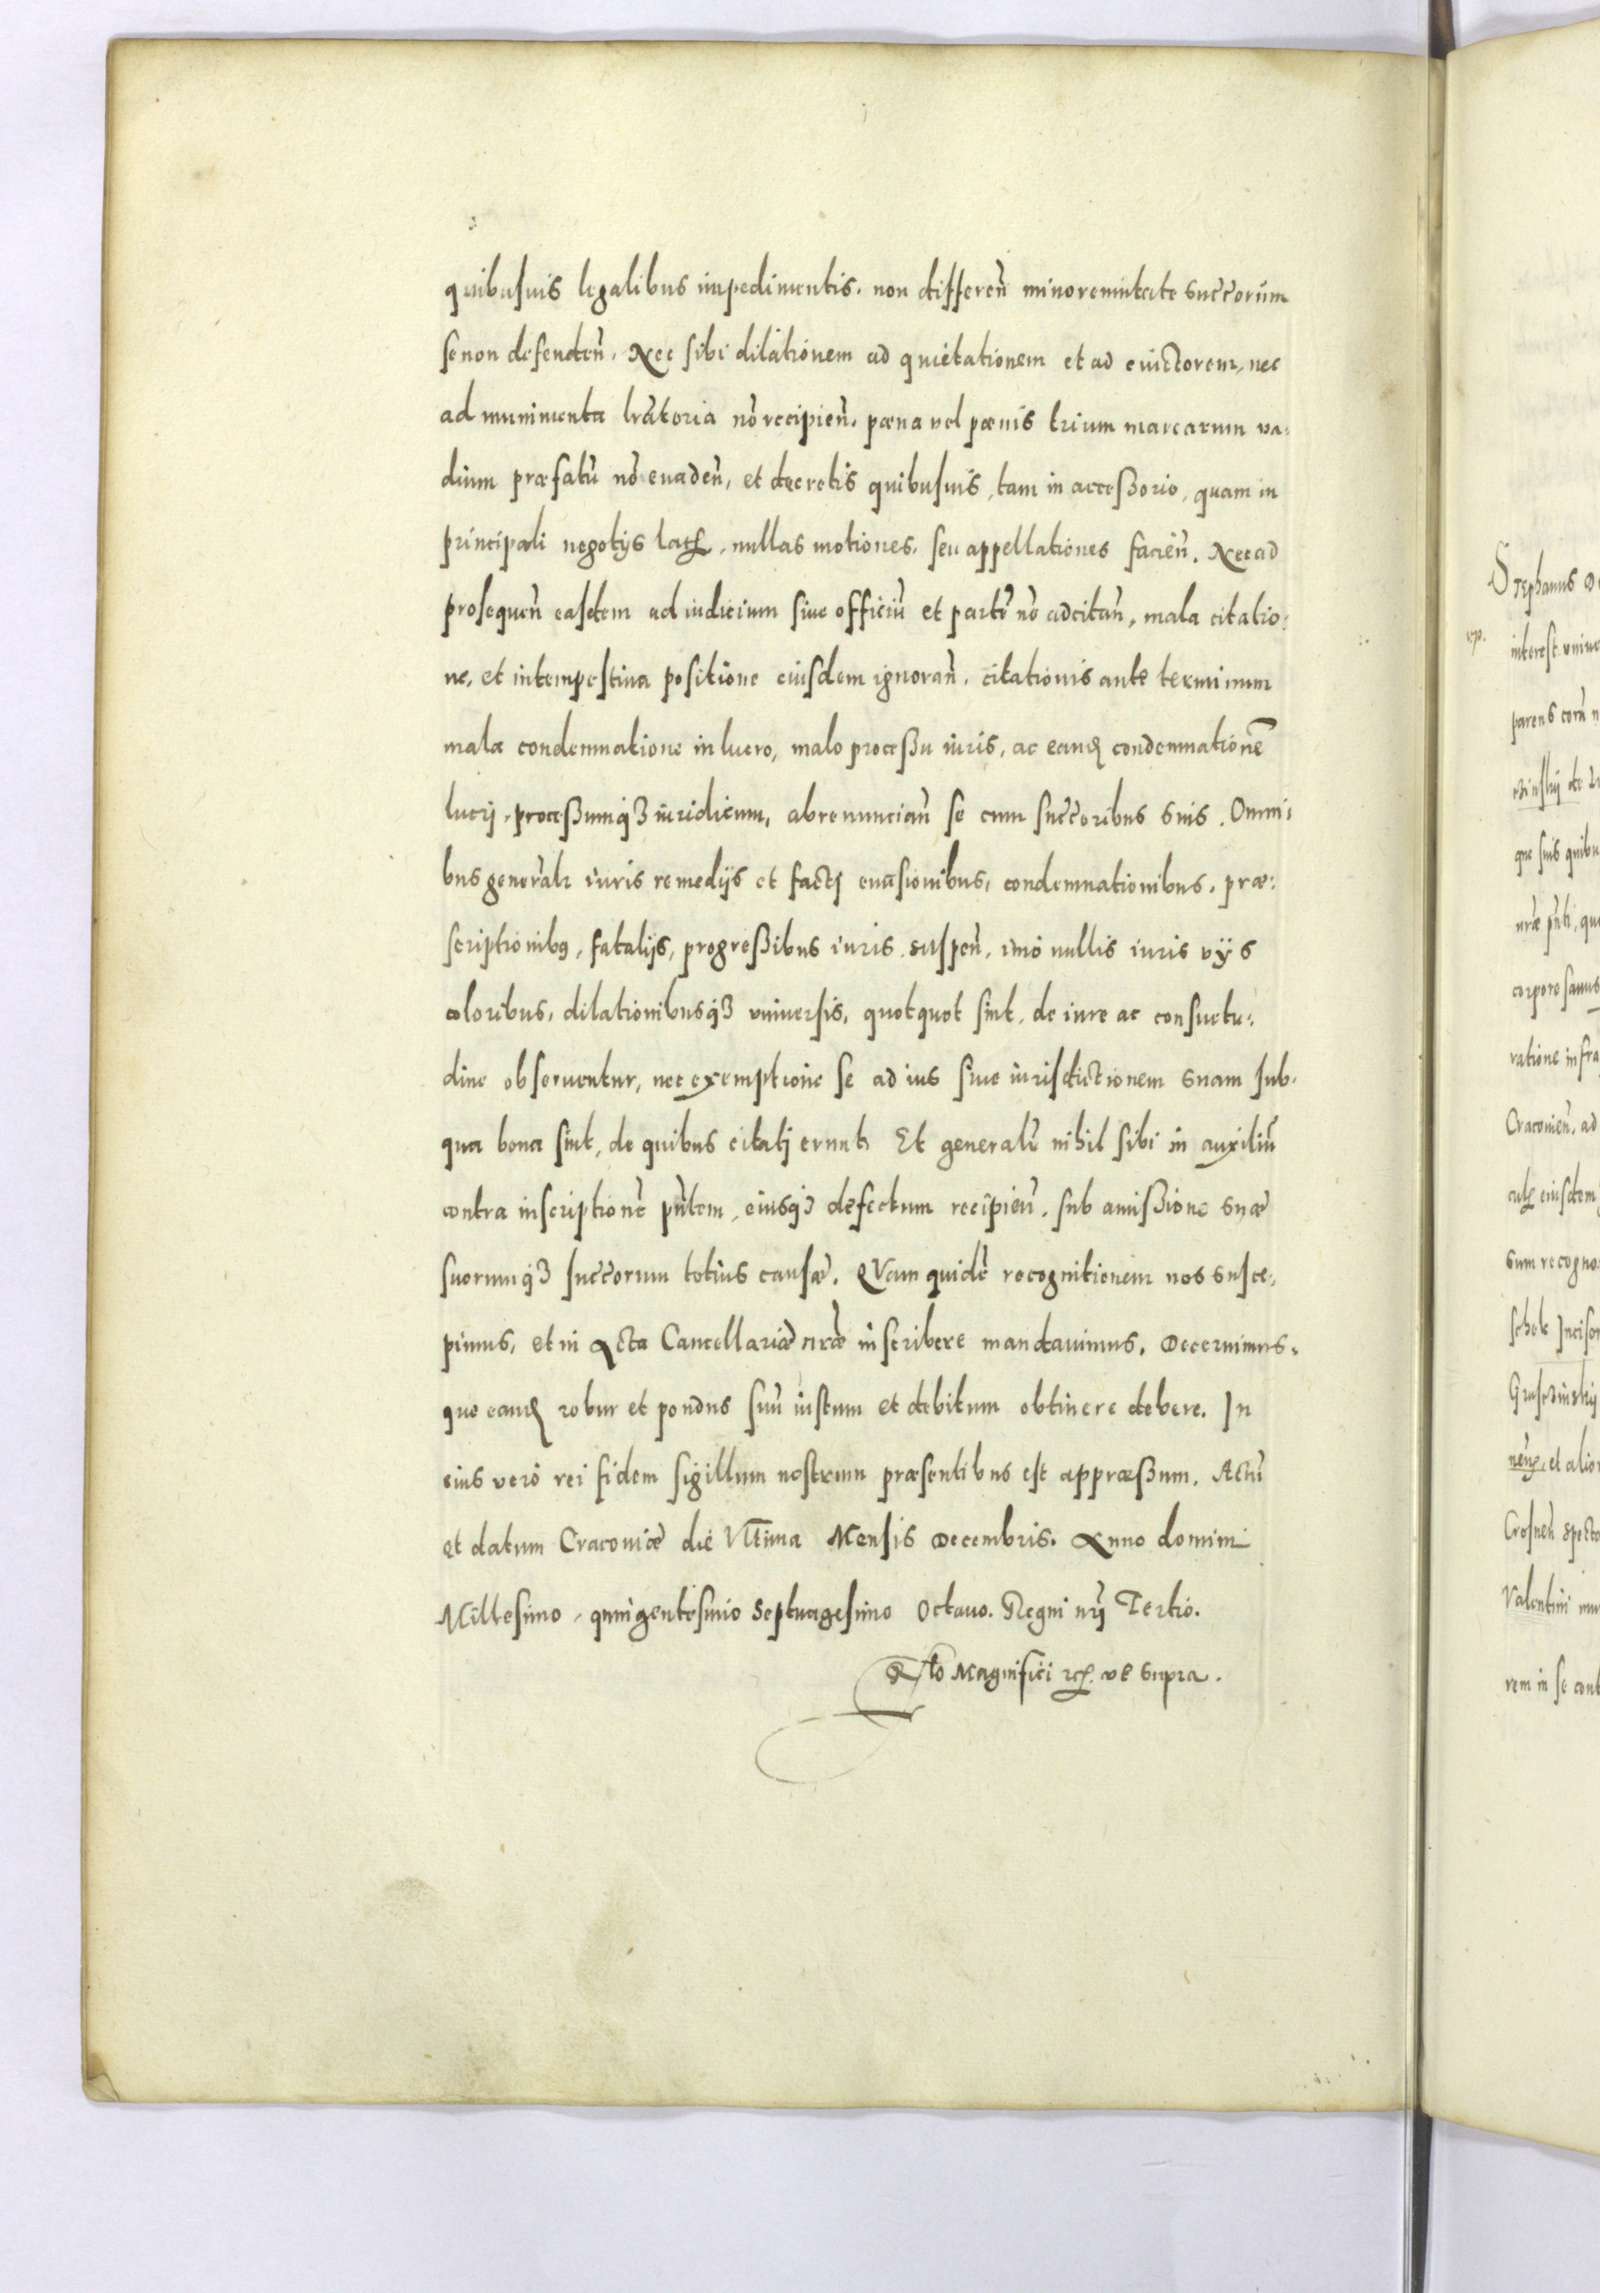 quibusuis legalibus impedimentis. non differen̄ minorennitate succ̄orum
se non defenden̄, Nec sibi dilationem ad quietationem et ad euictorem, nec
ad munimenta lrātoria nō recipien̄. pœna vel pœnis trium marcarum va:
dium præfatū nō euaden̄, et decretis quibusuis, tam in acceßorio, quam in
principali negotijs latꝭ, nullas motiones, seu appellationes facien̄. Nec ad
prosequen̄ easdem ad iudicium siue officiū et partē nō adcitan̄, mala citatio:
ne, et intempestiua positione eiusdem ignoran̄. citationis ante terminum
mala condemnatione in lucro, malo proceßu iuris, ac eand condemnationē
lucrj, proceßumqꝫ iuridicum, abrenuncian̄ se cum succ̄oribus suis. Omni:
bus generalr iuris remedijs et factj euasionibus, condemnationibus, præ:
scriptionibꝰ, fatalijs, progreßibus iuris suspen̄, imò nullis iuris vijs
coloribus, dilationibusqꝫ vniuersis, quotquot sint, de iure ac consuetu:
dine obseruentur, nec exemptione se ad ius siue iurisdictionem suam sub.
qua bona sint, de quibus citatj erunt. Et generalr̄ nihil sibi in auxiliū
contra inscriptionē pn̄tem, eiusqꝫ defectum recipien̄. sub amißione suæ
suorumqꝫ succ̄orum totius causæ. QVam quidē recognitionem nos susce:
pimus, et in Acta Cancellariæ nr̄æ inscribere mandauimus. Decernimus.
que eand robur et pondus suū iustum et debitum obtinere debere. In
eius verò rei fidem sigillum nostrum præsentibus est appræßum. Actū
et datum Cracouiæ die Vltima Mensis Decembris. Anno domini
Millesimo, quingentesimo Septuagesimo Octauo. Regni nrj Tertio.
Rlō Magnifici rcꝭ. vt supra.
Stephanus D
interest vniue
parens corā n
que suis quibu
nræ pn̄ti, que
corpore sanus
ratione infra
Cracouien̄. ad
eiusdem
sum recogno
et alio
Crosnen̄ specta
Valentini
rem in se cont